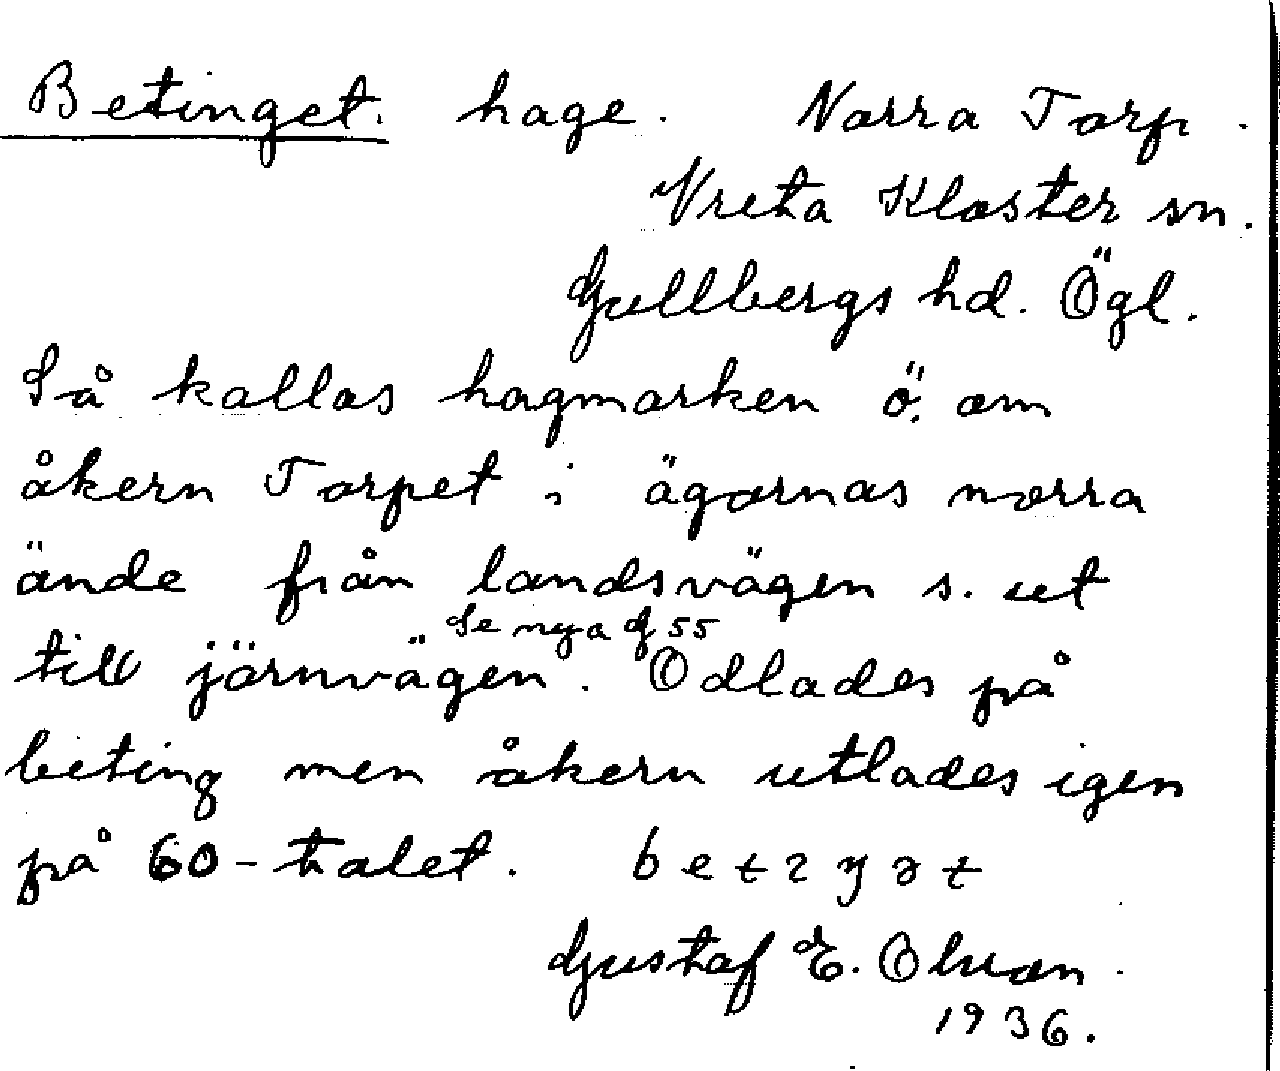 Betinget. hage. Norra Torp.
Vreta Kloster sn.
Gullbergs hd. Ögl.
Så kallas hagmarken ö. om
åkern Torpet i ägornas norra
ände från landsvägen s. ut
Se nya G 55
till järnvägen. Odlades på
beting men åkern utlades igen
på 60-talet.
Gustaf E. Olsson.
1936.